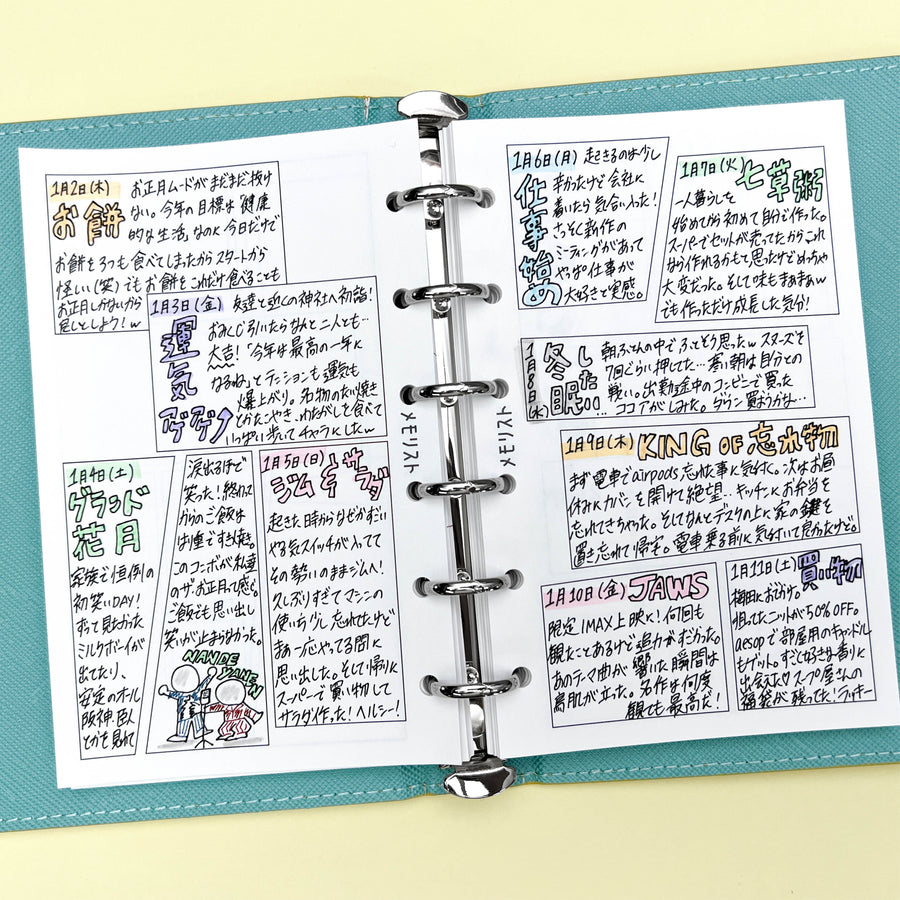 1月2日(木)
お餅
お正月ムードがまだまだ抜け
ない。今年の目標は"健康
的な生活"なのに今日だけで
お餅を3つも食べてしまったからスタートから
怪しい(笑)でもお餅をこれだけ食べることも
お正月しかないから
良しとしよう!w
1月3日(金)
運気
アゲアゲ↑
友達と近くの神社へ初詣!
おみくじ引いたらなんと二人とも…
大吉!「今年は最高の一年に
なるね」とテンションも運気も
爆上がり。名物のたい焼き
とかたこやき、わたがしを食べて
いっぱい歩いてチャラにしたw
1月4日(土)
グランド
花月
家族で恒例の
初笑いDAY!
ずっと見たかった
ミルクボーイが
出てたり、
安定のオール
阪神巨人
とかを見れて
涙出るほど
笑った!終わって
からのご飯は
はり重ですき焼き。
このコンボが私達
のザ・お正月て感じ。
ご飯でも思い出し
笑いが止まらなかった。
NANDE
YANEN
1月5日(日)
ジム&サラダ
起きた時からなぜかすごい
やる気スイッチが入ってて
その勢いのままジムへ!
久しぶりすぎてマシンの
使い方少し忘れてたけど
まあ一応やってる間に
思い出した。そして帰りに
スーパーで買い物して
サラダ作った!ヘルシー!
メモリスト
メモリスト
1月6日(月)
仕事始め
起きるのは少し
辛かったけど会社に
着いたら気合い入った!
さっそく新作の
ミーティングがあって
やっぱ仕事が
大好きと実感。
1月7日(火)
七草粥
一人暮らしを
始めてから初めて自分で作った。
スーパーでセットが売ってたからこれ
なら作れるかもて思ったけどめっちゃ
大変だった。そして味もまあまあw
でも作っただけ成長した気分!
1月8日(水)
冬眠したい…
朝ふとんの中でふっとそう思ったwスヌーズを
7回ぐらい押してた…寒い朝は自分との
戦い。出勤途中のコンビニで買った
ココアがしみた。ダウン買おうかな…
1月9日(木)
KING OF 忘れ物
まず電車でairpods忘れた事に気付く。次はお昼
休みにカバンを開けて絶望…キッチンにお弁当を
忘れてきちゃった。そしてなんとデスクの上に家の鍵を
置き忘れて帰宅。電車乗る前に気付いて良かったけど。
1月10日(金)
JAWS
限定IMAX上映に!何回も
観たことあるけど迫力がすごかった。
あのテーマ曲が響いた瞬間は
鳥肌が立った。名作は何度
観ても最高だ!
1月11日(土)
買い物
梅田におでかけ。
狙ってたニットが50%OFF。
aesopで部屋用のキャンドル
もゲット。すごく好きな香りに
出会えた♡スープ屋さんの
福袋が残ってた!ラッキー